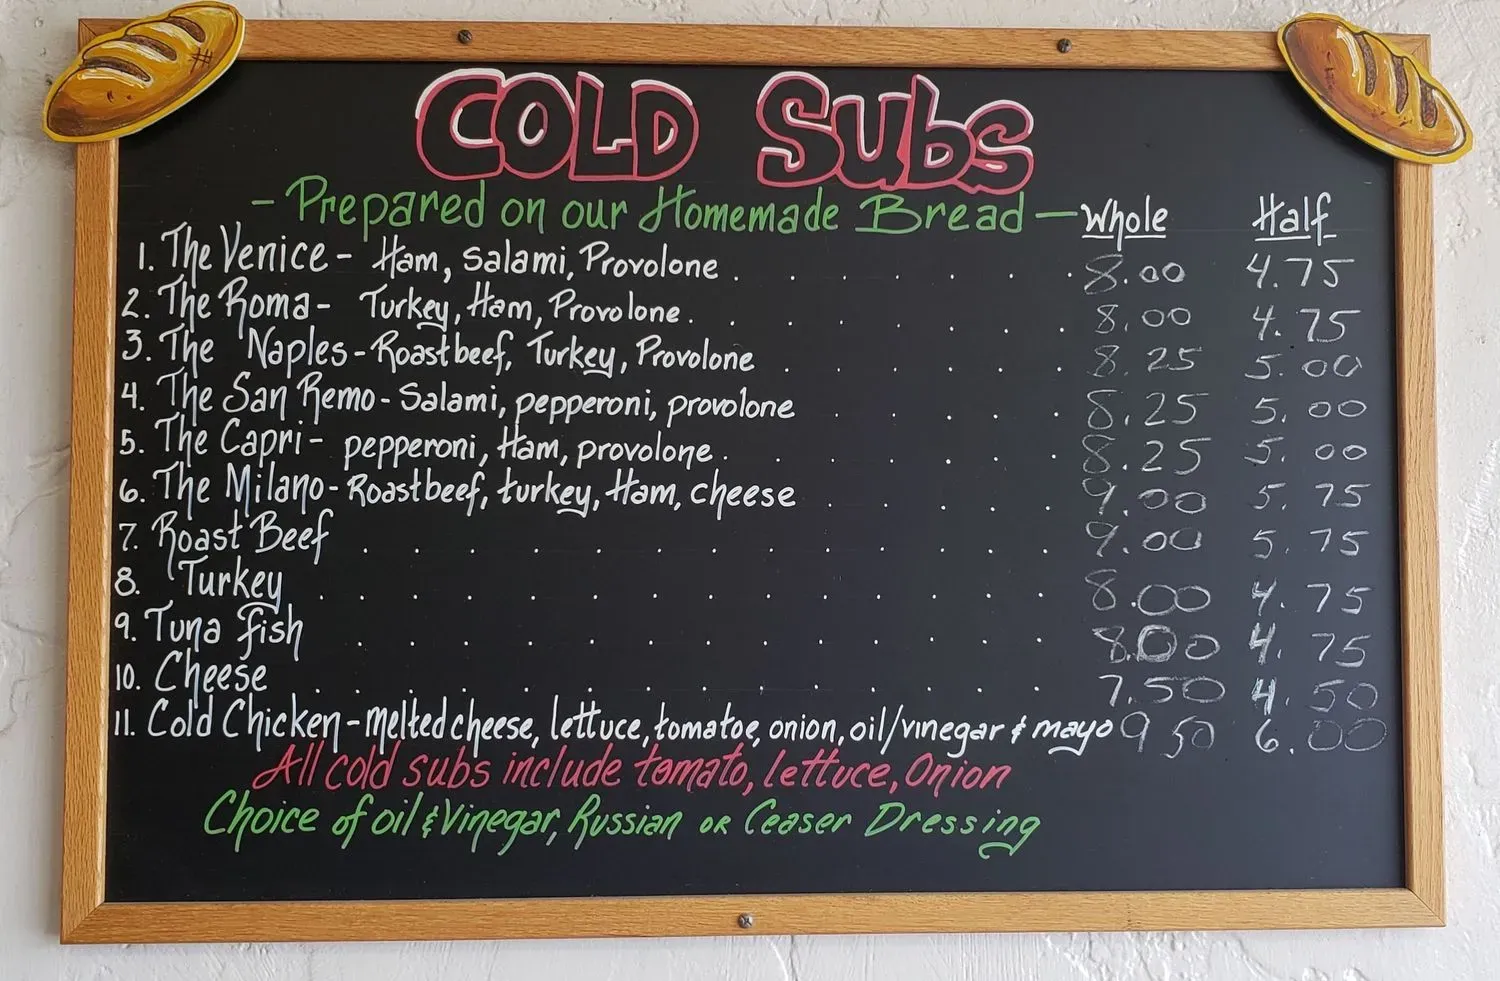 COLD SUBS
- Prepared on our Homemade Bread — Whole Half
1. The Venice - Ham, Salami, Provolone . . . . . . . 8.00 4.75
2. The Roma - Turkey, Ham, Provolone . . . . . . . . 8.00 4.75
3. The Naples - Roast beef, Turkey, Provolone . . . . . . 8.25 5.00
4. The San Remo - Salami, pepperoni, provolone . . . . . 8.25 5.00
5. The Capri - pepperoni, Ham, provolone . . . . . . . 8.25 5.00
6. The Milano - Roast beef, turkey, Ham, cheese . . . . . 9.00 5.75
7. Roast Beef . . . . . . . . . . . . . 9.00 5.75
8. Turkey . . . . . . . . . . . . . . 8.00 4.75
9. Tuna fish . . . . . . . . . . . . . 8.00 4.75
10. Cheese . . . . . . . . . . . . . . 7.50 4.50
11. Cold Chicken - melted cheese, lettuce, tomatoe, onion, oil/vinegar & mayo 9 50 6.00
All cold subs include tomato, Lettuce, Onion
Choice of oil & Vinegar, Russian OR Ceaser Dressing